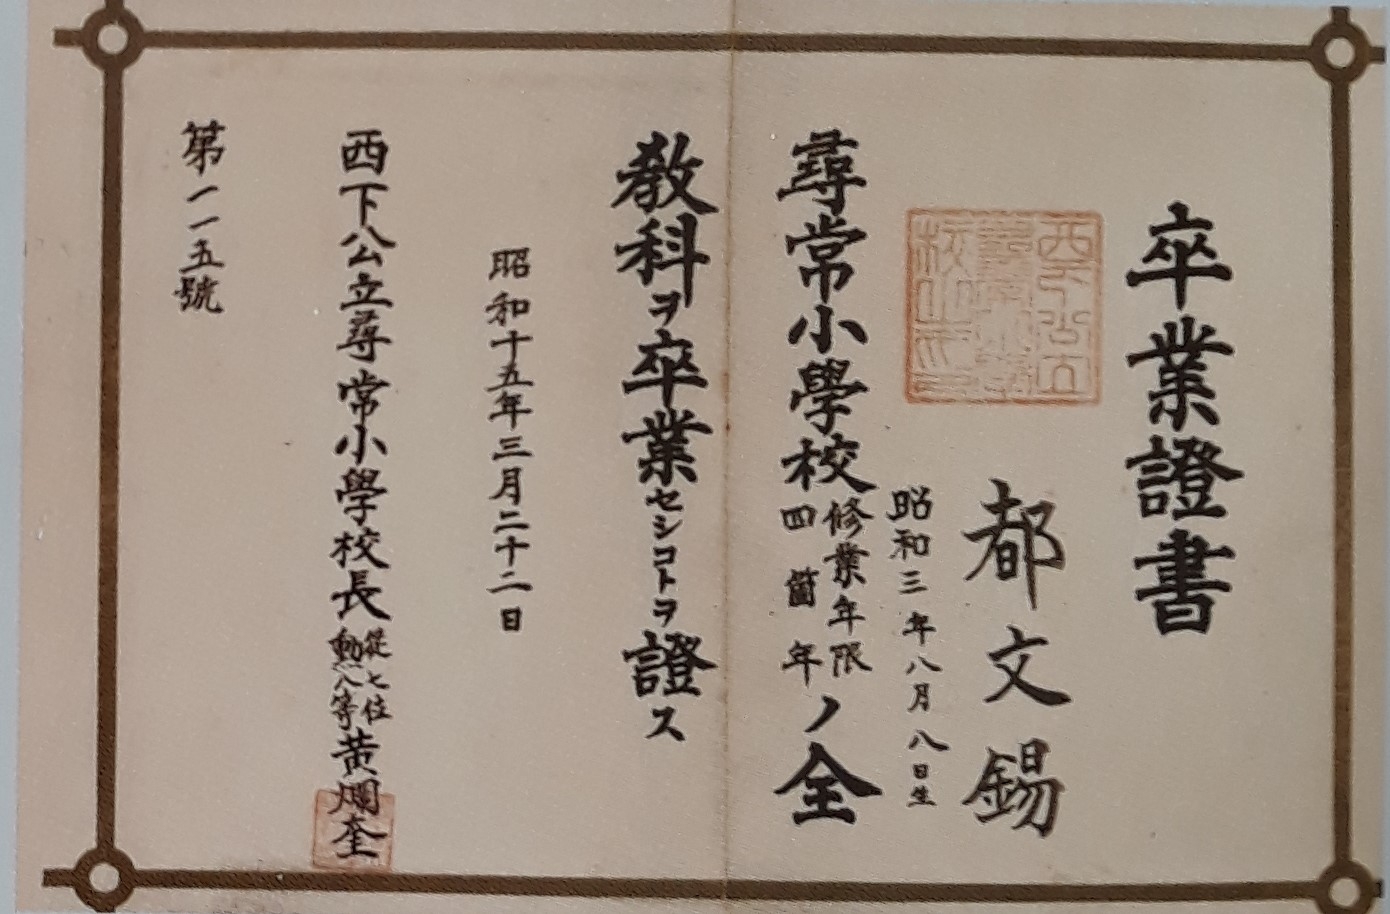 卒業證書
都文錫
昭和三年八月八日生
尋常小學校修業年限四箇年ノ全
教科ヲ卒業セシコトヲ證ス
昭和十五年三月二十二日
西下公立尋常小學校長從七位勳八等黄爛奎
第一一五號
西下公立
尋常小學
校之印